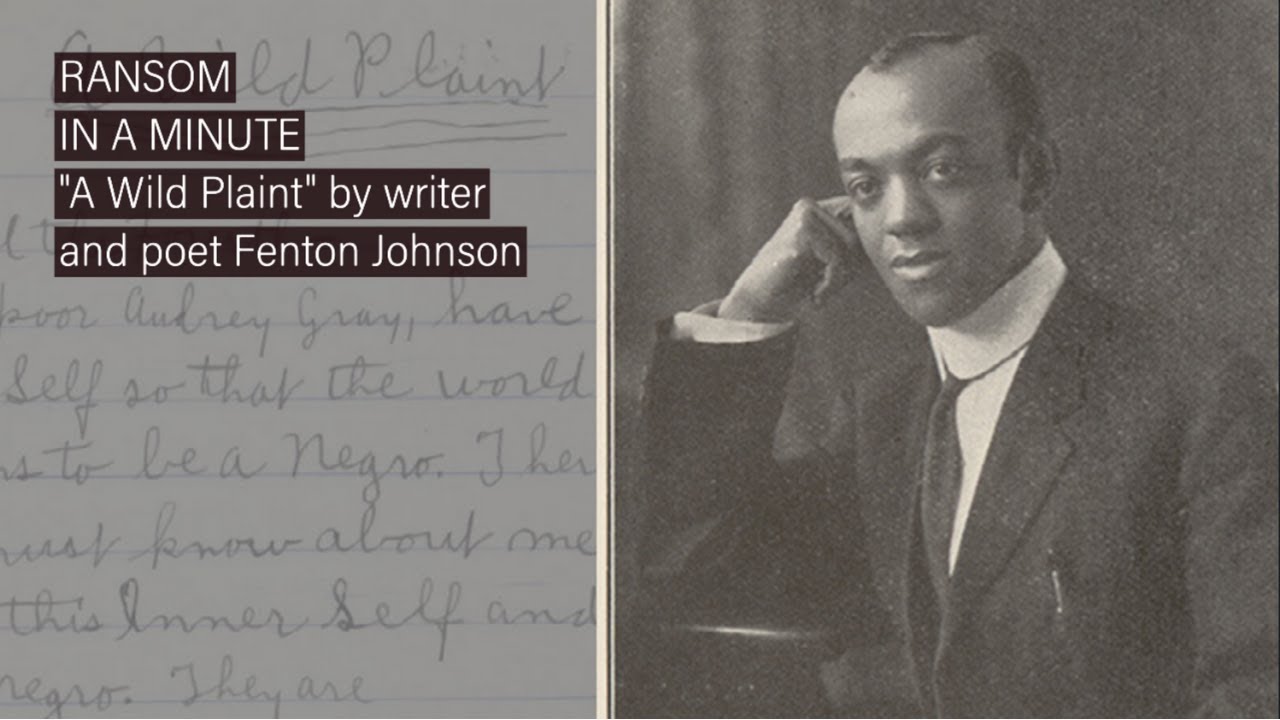 RANSOM
IN A MINUTE
"A Wild Plaint" by writer
and poet Fenton Johnson
Wild Plaint
poor Audrey Gray, have
Self so that the world
to be a Negro.
know about me
this Inner Self and
negro. They are